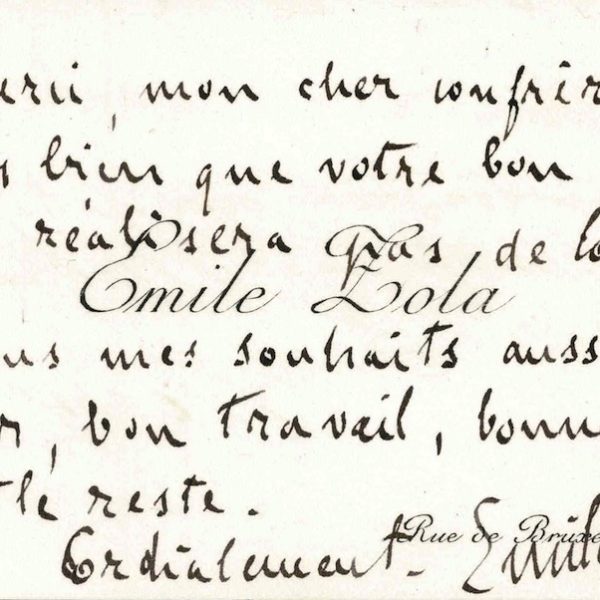 erci, mon cher confrèr
s bien que votre bon
réalisera pas, de lo
Emile Zola
us mes souhaits auss
r, bon travail, bonn
t le reste.
Rue de Bruxe
Cordialement. Emile